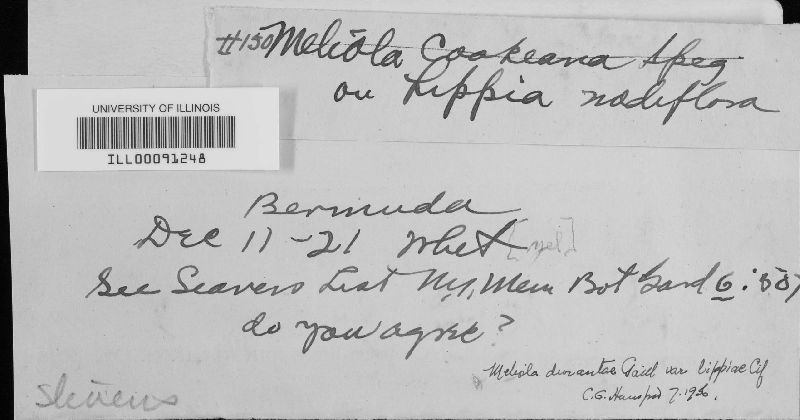 #150 Meliola Cookeana Speg
on Lippia nodiflora
UNIVERSITY OF ILLINOIS
ILL00091248
Bermuda
Dec 11-21 Whet [zel]
See Seavers List N.Y. Mem Bot Gard 6:507
do you agree?
Meliola durantae Gaill var lippiae Cif
C.G. Hansford 7.1956.
Stevens